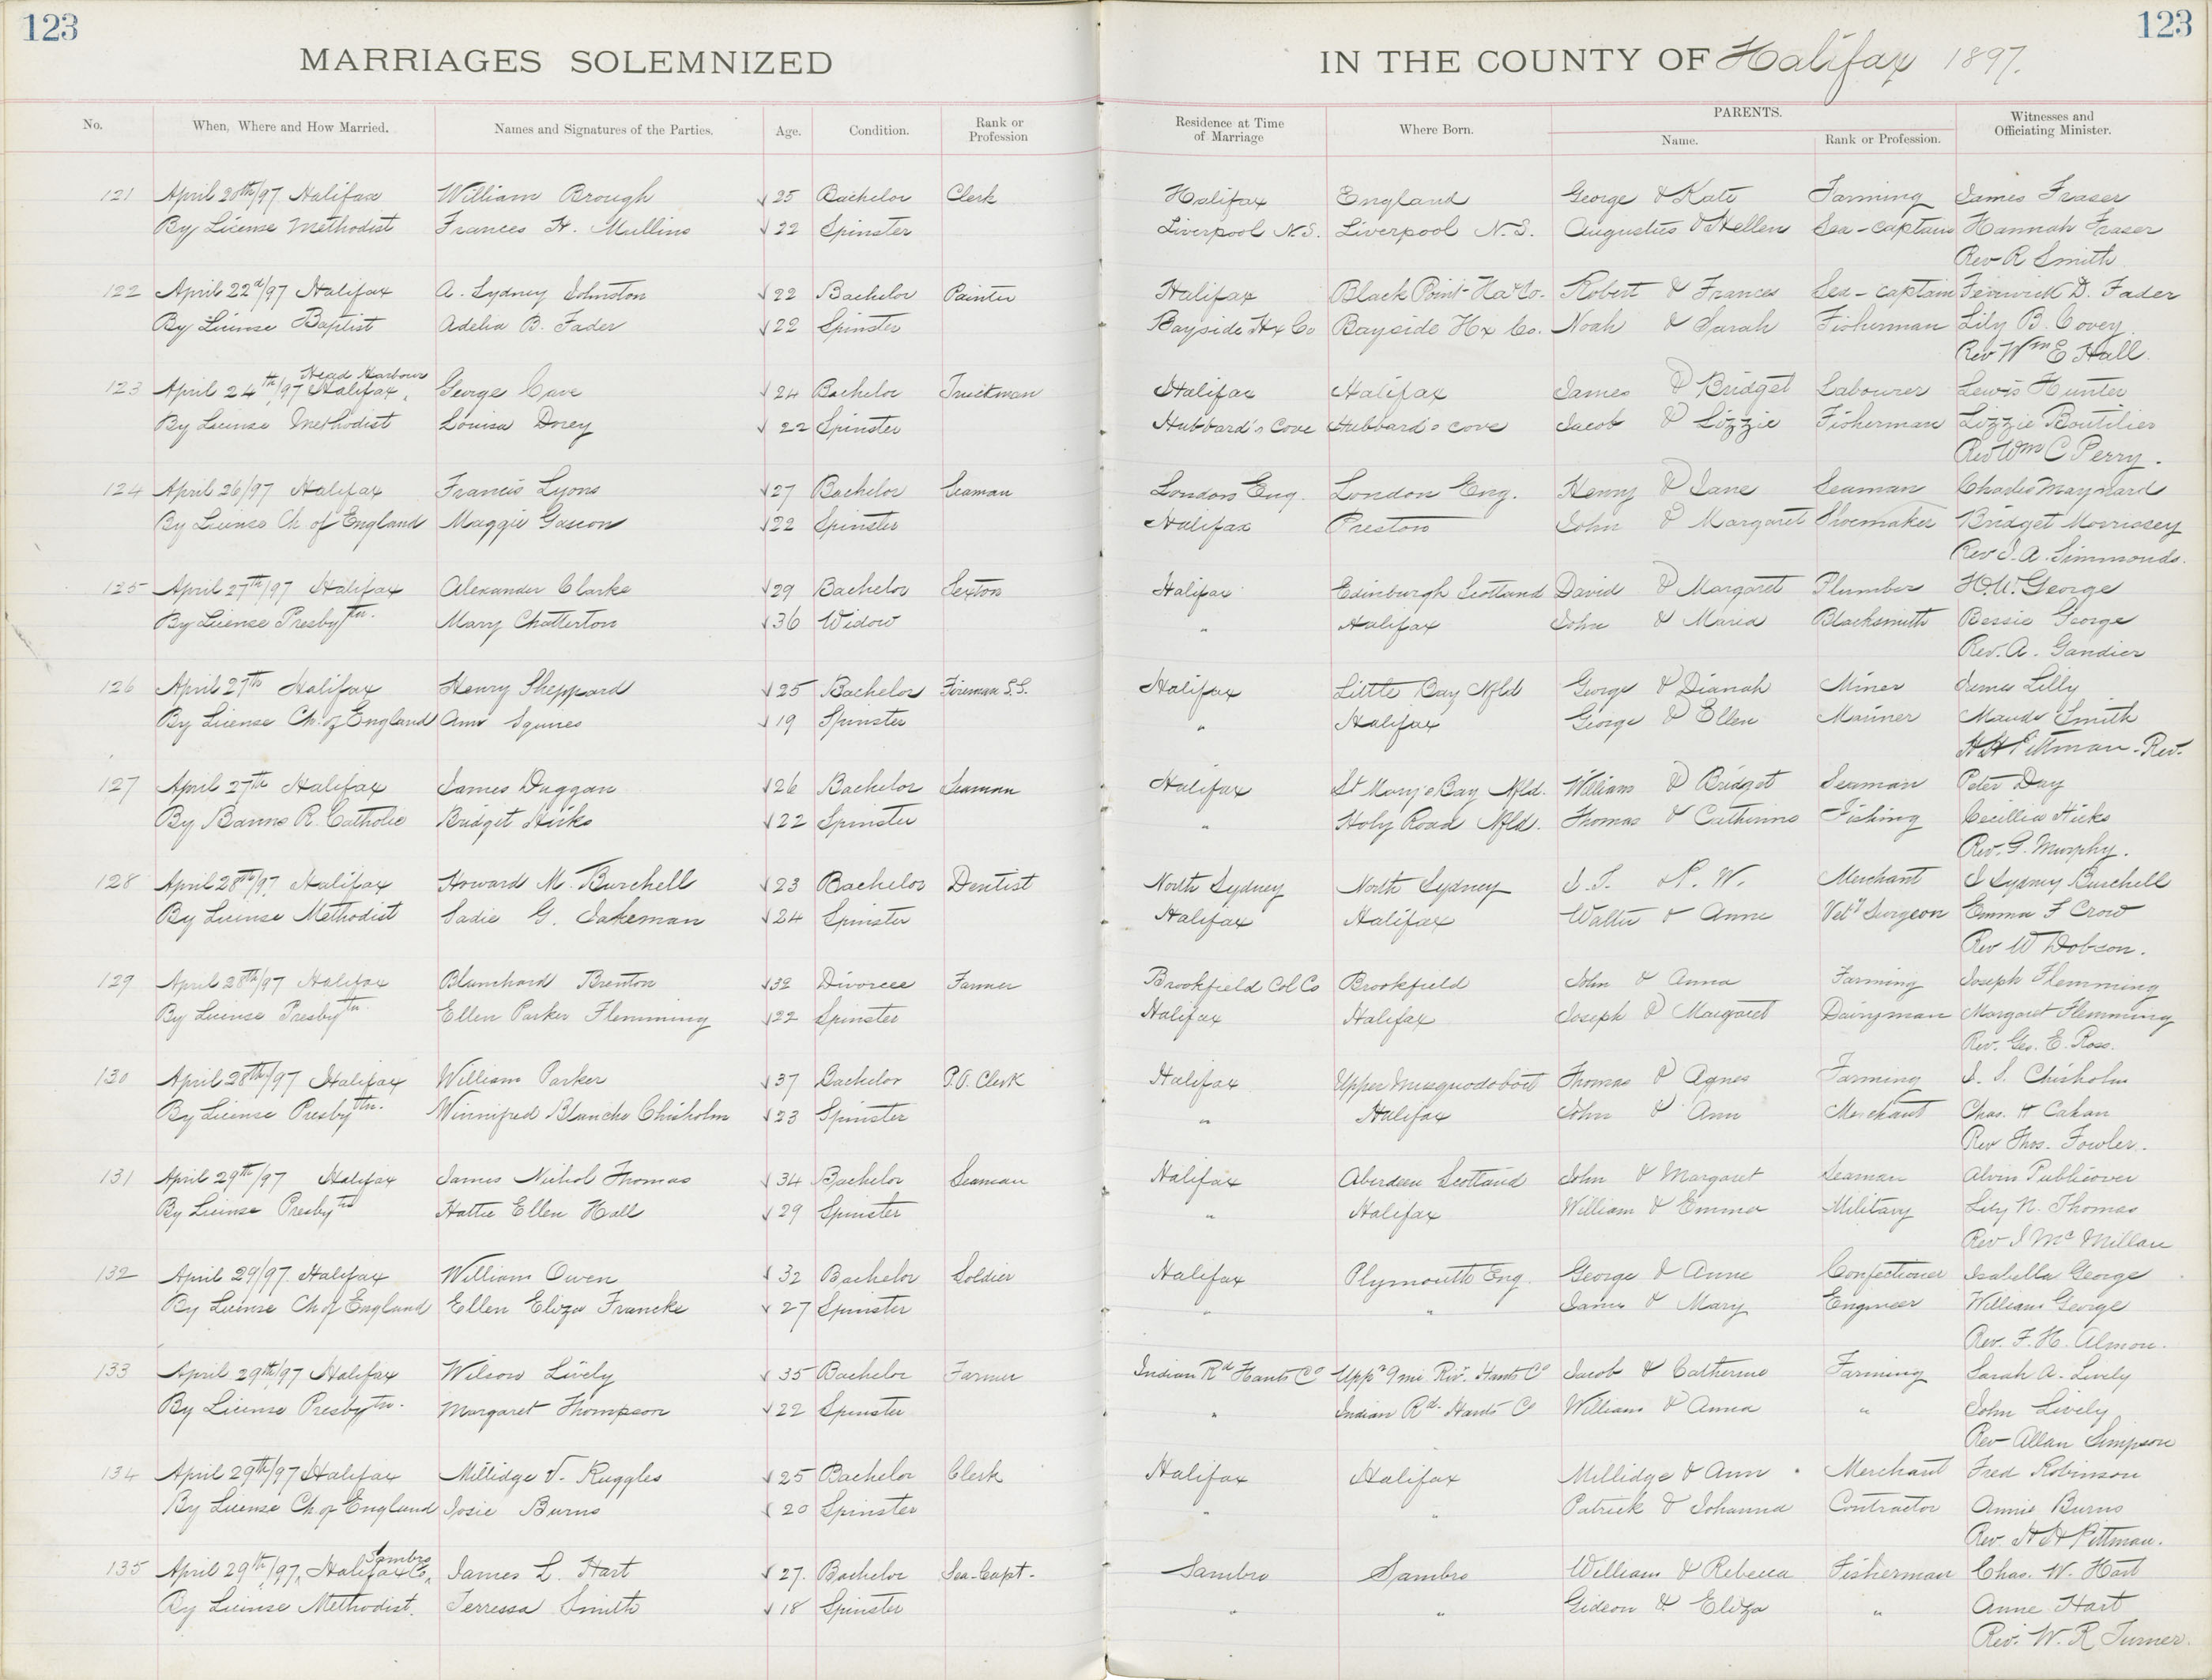 123
123
MARRIAGES SOLEMNIZED IN THE COUNTY OF Halifax 1897.
No. When, Where and How Married. Names and Signatures of the Parties. Age. Condition. Rank or Profession Residence at Time of Marriage Where Born. PARENTS. Name. Rank or Profession. Witnesses and Officiating Minister.
121 April 20th/97 Halifax William Brough 25 Bachelor Clerk Halifax England George & Kate Farming James Fraser
By License Methodist Frances H. Mullins 22 Spinster Liverpool N.S. Liverpool N.S. Augustus & Hellen Sea-captain Hannah Fraser
Rev R Smith
122 April 22d/97 Halifax A. Sydney Johnston 22 Bachelor Painter Halifax Black Point Hx Co. Robert & Frances Sea-captain Fenwick D. Fader
By License Baptist Adelia B. Fader 22 Spinster Bayside Hx Co Bayside Hx Co. Noah & Sarah Fisherman Lily B. Covey.
Rev Wm E Hall.
123 April 24th/97 Head Harbour Halifax, George Cave 24 Bachelor Truckman Halifax Halifax James & Bridget Labourer Lewis Hunter
By License Methodist Louisa Dorey 22 Spinster Hubbard's Cove Hubbard's Cove Jacob & Lizzie Fisherman Lizzie Boutilier
Rev Wm C Perry.
124 April 26/97 Halifax Francis Lyons 27 Bachelor Seaman London Eng. London Eng. Henry & Jane Seaman Charles Maynard
By License Ch of England Maggie Gascon 22 Spinster Halifax Preston John & Margaret Shoemaker Bridget Morrissey
Rev I. A. Simmonds.
125 April 27th/97 Halifax Alexander Clarke 29 Bachelor Sexton Halifax Edinburgh Scotland David & Margaret Plumber H. W. George
By License Presbytn. Mary Chatterton 36 Widow " Halifax John & Maria Blacksmith Bessie George
Rev. A. Gandier
126 April 27th Halifax Henry Sheppard 25 Bachelor Fireman S.S. Halifax Little Bay Nfld George & Dianah Miner James Lilly
By License Ch. of England Ann Squires 19 Spinster " Halifax George & Ellen Mariner Maude Smith
H H Pittman - Rev.
127 April 27th Halifax James Duggan 26 Bachelor Seaman Halifax St Mary's Bay Nfld. William & Bridget Seaman Peter Day
By Banns R. Catholic Bridget Hicks 22 Spinster " Holy Road Nfld. Thomas & Catherine Fishing Cecillia Hicks
Rev. G. Murphy.
128 April 28th/97 Halifax Howard M. Burchell 23 Bachelor Dentist North Sydney North Sydney J. T. N. W. Merchant J Sydney Burchell
By License Methodist Sadie G. Jakeman 24 Spinster Halifax Halifax Walter & Anne Vety Surgeon Emma F Crow
Rev W Dobson.
129 April 28th/97 Halifax Blanchard Brenton 32 Divorcee Farmer Brookfield Col Co Brookfield John & Anna Farming Joseph Flemming
By License Presbytn Ellen Parker Flemming 22 Spinster Halifax Halifax Joseph & Margaret Dairyman Margaret Flemming
Rev. Geo. E. Ross.
130 April 28th/97 Halifax William Parker 37 Bachelor P.O. Clerk Halifax Upper Musquodoboit Thomas & Agnes Farming J. S. Chisholm
By License Presbytn. Winnifred Blanche Chisholm 23 Spinster " Halifax John & Ann Merchant Chas. H Cahan
Rev Thos. Fowler.
131 April 29th/97 Halifax James Nichol Thomas 34 Bachelor Seaman Halifax Aberdeen Scotland John & Margaret Seaman Alvin Publicover
By License Presbytn Hattie Ellen Hall 29 Spinster " Halifax William & Emma Military Lily N. Thomas
Rev J McMillan
132 April 29/97. Halifax William Owen 32 Bachelor Soldier Halifax Plymouth Eng. George & Anne Confectioner Isabella George
By License Ch of England Ellen Eliza Francks 27 Spinster " " James & Mary Engineer William George
Rev. F. H. Almon.
133 April 29th/97 Halifax Wilson Lively 35 Bachelor Farmer Indian Rd Hants Co Uppr 9 mi Rivr. Hants Co Jacob & Catherine Farming Sarah A. Lively
By License Presbytn. Margaret Thompson 22 Spinster " Indian Rd. Hants Co William & Anna " John Lively
Rev Allan Simpson
134 April 29th/97 Halifax Millidge V. Ruggles 25 Bachelor Clerk Halifax Halifax Millidge & Ann Merchant Fred Robinson
By License Ch. of England Josie Burns 20 Spinster " " Patrick & Johanna Contractor Annie Burns
Rev. H H Pittman.
135 April 29th/97, Sambro Halifax Co, James L. Hart 27. Bachelor Sea-Capt. Sambro Sambro William & Rebecca Fisherman Chas. W. Hart
By License Methodist. Terressa Smith 18 Spinster " " Gideon & Eliza " Anne Hart
Rev. W. R Turner.